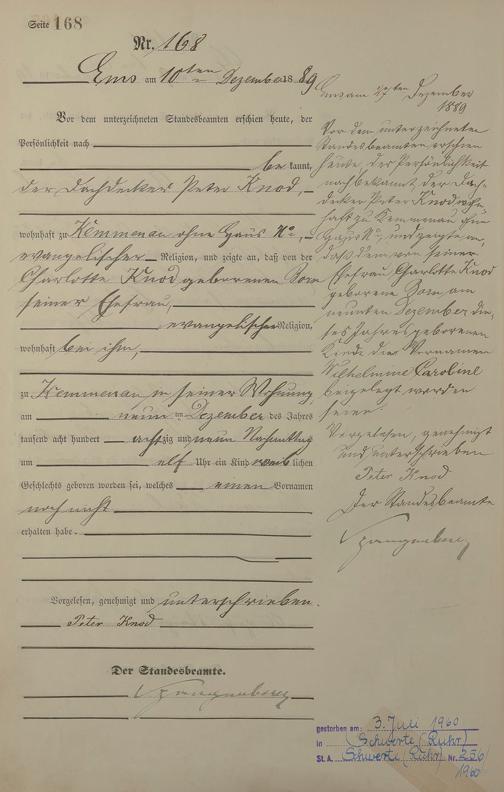 Seite 168
Nr. 168
Ems am 10ten Dezember 1889
Vor dem unterzeichneten Standesbeamten erschien heute, der
Persönlichkeit nach
bekannt,
der Dachdecker Peter Knod,
wohnhaft zu Kemmenau ohne Haus No,
evangelischer Religion, und zeigte an, daß von der
Charlotte Knod geborenen Born
seiner Ehefrau,
evangelischer Religion,
wohnhaft bei ihm,
zu Kemmenau in seiner Wohnung
am neun ten Dezember des Jahres
tausend acht hundert achtzig und neun Nachmittag
um elf Uhr ein Kind weiblichen
Geschlechts geboren worden sei, welches einen Vornamen
noch nicht
erhalten habe.
Vorgelesen, genehmigt und unterschrieben.
Peter Knod
Der Standesbeamte.
Spangenberg
Ems am Dezember
1889
Vor dem unterzeichneten
Standesbeamten erschien
heute, der Persönlichkeit
nach bekannt, der Dach-
decker Peter Knod wohn-
haft zu Kemmenau
Haus No, und zeigte an,
daß dem von seiner
Ehefrau Charlotte Knod
geborene Born am
neunten Dezember die-
ses Jahres geborenen
Kinde die Vornamen
Wilhelmine Caroline
beigelegt worden
seien.
Vorgelesen, genehmigt
und unterschrieben
Peter Knod
Der Standesbeamte
Spangenberg
gestorben am: 3. Juli 1960
in Schwerte (Ruhr)
St. A. Schwerte (Ruhr) Nr. 256/
1960